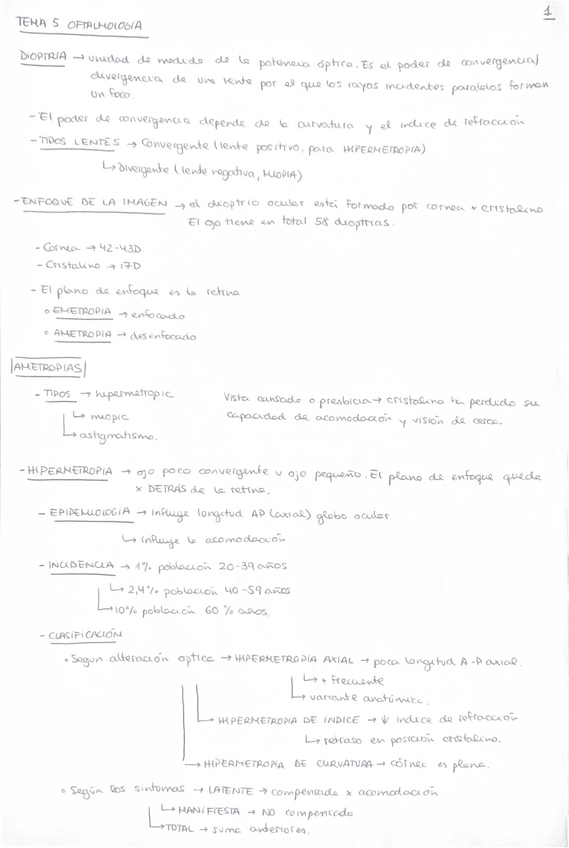 1
TEMA 5 OFTALMOLOGÍA
DIOPTRÍA → unidad de medida de la potencia óptica. Es el poder de convergencia/
divergencia de una lente por el que los rayos incidentes paralelos forman
un foco.
- El poder de convergencia depende de la curvatura y el índice de refracción
- TIPOS LENTES → Convergente (lente positiva, para HIPERMETROPIA)
↳ Divergente (lente negativa, MIOPIA)
- ENFOQUE DE LA IMAGEN → el dioptrio ocular está formado por cornea + cristalino
El ojo tiene en total 58 dioptrias.
- Cornea → 42-43D
- Cristalino → 17D
- El plano de enfoque es la retina
• EMETROPIA → enfocado
• AMETROPIA → desenfocado
AMETROPIAS
- TIPOS → hipermetropia
↳ miopia
↳ astigmatismo.
Vista cansada o presbicia → cristalino ha perdido su
capacidad de acomodación y visión de cerca.
- HIPERMETROPIA → ojo poco convergente u ojo pequeño. El plano de enfoque queda
x DETRÁS de la retina.
- EPIDEMIOLOGÍA → influye longitud AP (axial) globo ocular
↳ influye la acomodación
- INCIDENCIA → 1% población 20-39 años
↳ 2,4% población 40-59 años
↳ 10% población 60 % años.
- CLASIFICACIÓN
• Segun alteración optica → HIPERMETROPIA AXIAL → poca longitud A-P axial.
↳ + frecuente
↳ variante anatómica.
↳ HIPERMETROPIA DE INDICE → ↓ indice de refracción
↳ retraso en posición cristalino.
→ HIPERMETROPIA DE CURVATURA → córnea es plana.
• Según los sintomas → LATENTE → compensada x acomodación
↳ MANIFIESTA → NO compensada
↳ TOTAL → suma anteriores.